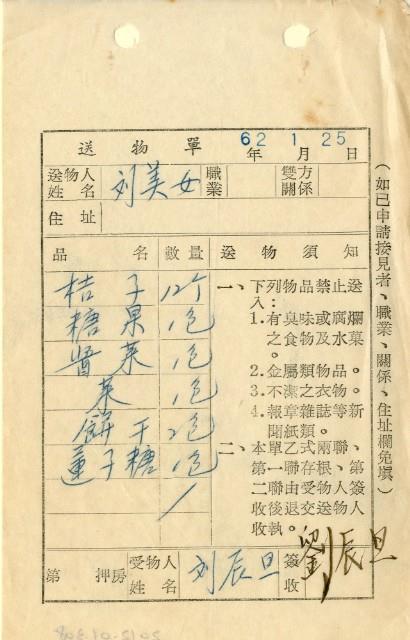 送物單
62年1月25日
送物人姓名 刘美女 職業 雙方關係
住址
品名 數量 送物須知
桔子 12个
糖果 1包
醬菜 1包
菜 1包
餅干 2包
蓮子糖 1包
一、下列物品禁止送入：
1.有臭味或腐爛之食物及水菓。
2.金屬類物品。
3.不潔之衣物。
4.報章雜誌等新聞紙類。
二、本單乙式兩聯、第一聯存根、第二聯由受物人簽收後退交送物人收執。
第 押房 受物人姓名 刘辰旦 簽收 劉辰旦
（如已申請接見者、職業、關係、住址欄免塡）